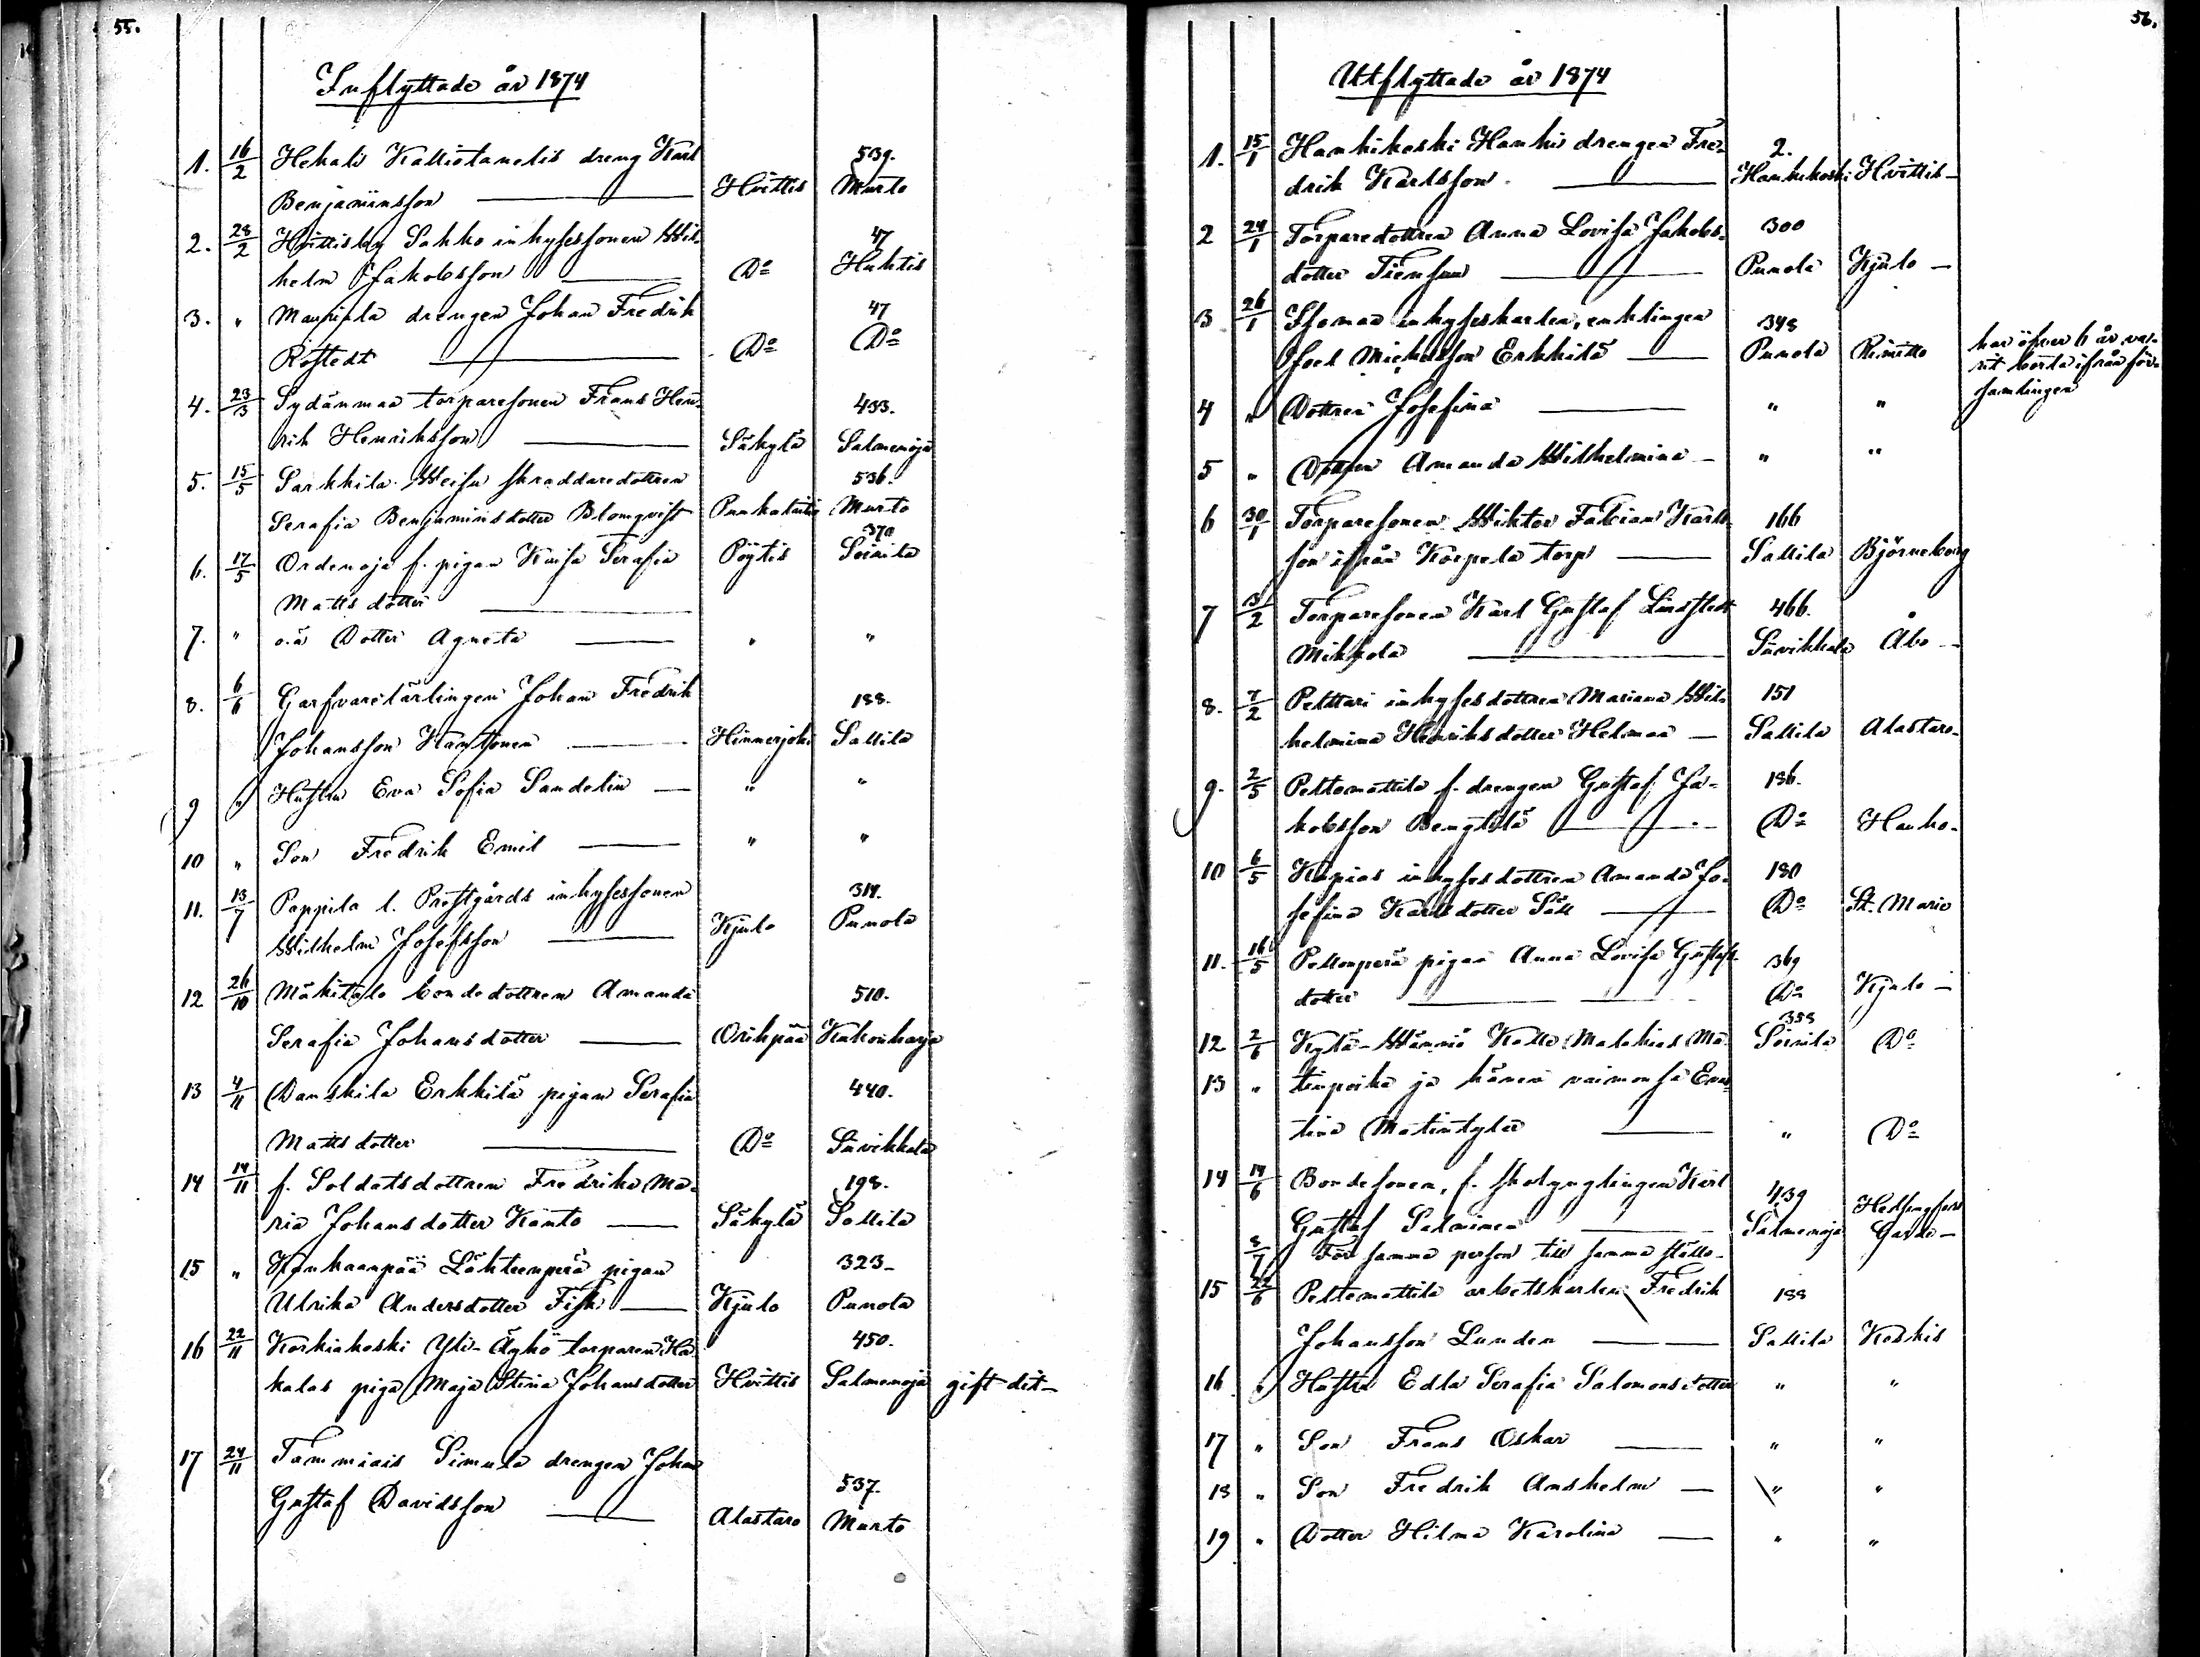 55.
Inflyttade år 1874
1. 16/2 Hekali Kalliotanelis dreng Karl 539.
Benjaminsson Hvittis Murto
2. 28/2 Hvittisby Sakko inhysessonen Wil- 47
helm Jakobsson Do Huhtis
3. " drengen Johan Fredrik 47
Rostedt Do Do
4. 23/3 Sydänmaa torparesonen Frans Hen- 433.
rik Henriksson Säkylä Salmenoja
5. 15/5 Sarkkila skraddaredottren 536.
Serafia Benjaminsdotter Blomqvist Punkalaitio Murto
6. 17/5 Ordenoja f. pigan Kaisa Serafia Pöytis 370 Soinila
Mattsdotter
7. " o.ä Dotter Agneta " "
8. 6/6 Garfvarelärlingen Johan Fredrik 188.
Johansson Hinnerjoki Sallila
9 " Hustru Eva Sofia Sandelin " "
10 " Son Fredrik Emil " "
11. 13/7 Pappila l. Prostgårds inhysessonen 314.
Wilhelm Josefsson Kjulo Punola
12 26/10 Mäkitalo bondedottren Amanda 510.
Serafia Johansdotter Orihpää Kukonharja
13 4/11 Danskila Erkkilä pigan Serafia 440.
Mattsdotter Do Suvikkala
14 14/11 f. Soldatsdottren Fredrika Ma- 198.
ria Johansdotter Kanto Säkylä Sallila
15 " Kankaanpää Lähteenperä pigan 323
Ulrika Andersdotter Fisk Kjulo Punola
16 22/11 Korkiakoski Yli-Äyhö torparen Ha- 450.
kalas piga Maja Stina Johansdotter Hvittis Salmenoja gift dit
17 24/11 Tammiais Simula drengen Johan
Gustaf Davidsson 537.
Alastaro Murto
56.
Utflyttade år 1874
1. 15/1 Hankikoski Hankis drengen Fre- 2.
drik Karlsson Hankikoski Hvittis
2 24/1 Torparedottren Anna Lovisa Jakobs- 300
dotter Punola Kjulo
3 26/1 inhyseskarlen, enklingen 348
Joel Michelsson Erkkilä Punola Rimitto
har öfver 6 år va-
rit borta ifrån för-
samlingen
4 " Dottren Josefina " "
5 " Dottren Amanda Wilhelmina " "
6 30/1 Torparesonen Wiktor Fabian Karls- 166
son ifrån Korpela torp Sallila Björneborg
7 13/2 Torparesonen Karl Gustaf Lindstedt 466.
Mikkola Suvikkala Åbo
8. 7/2 Pelttari inhysesdottren Mariana Wil- 151
helmina Henriksdotter Helmaa Sallila Alastaro
9. 2/5 Peltomattila f. drengen Gustaf Ja- 186.
kobsson Bengtilä Do Hanko
10 6/5 Kapias inhysesdottren Amanda Jo- 180
sefina Karlsdotter Säll Do St. Marie
11. 16/5 Peltonperä pigan Anna Lovisa Gustafs- 369
dotter Do Kjulo
12 2/6 Kylä-Wänniä Kalle Malakias Ma- 358 Soinila Do
13 " tinpoika ja hänen vaimonsa Eves-
tina Matintytär " Do
14 14/6 Bondesonen, f. skolynglingen Karl 439 Helsingfors
Gustaf Salminen Salmenoja Garde
8/7 För samma person till samma ställe
15 22/6 Peltomattila arbetskarlen Fredrik 188
Johansson Lunden Sallila Koskis
16 " Hustru Edla Serafia Salomonsdotter " "
17 " Son Frans Oskar " "
18 " Son Fredrik Anshelm " "
19 " Dotter Hilma Karolina " "